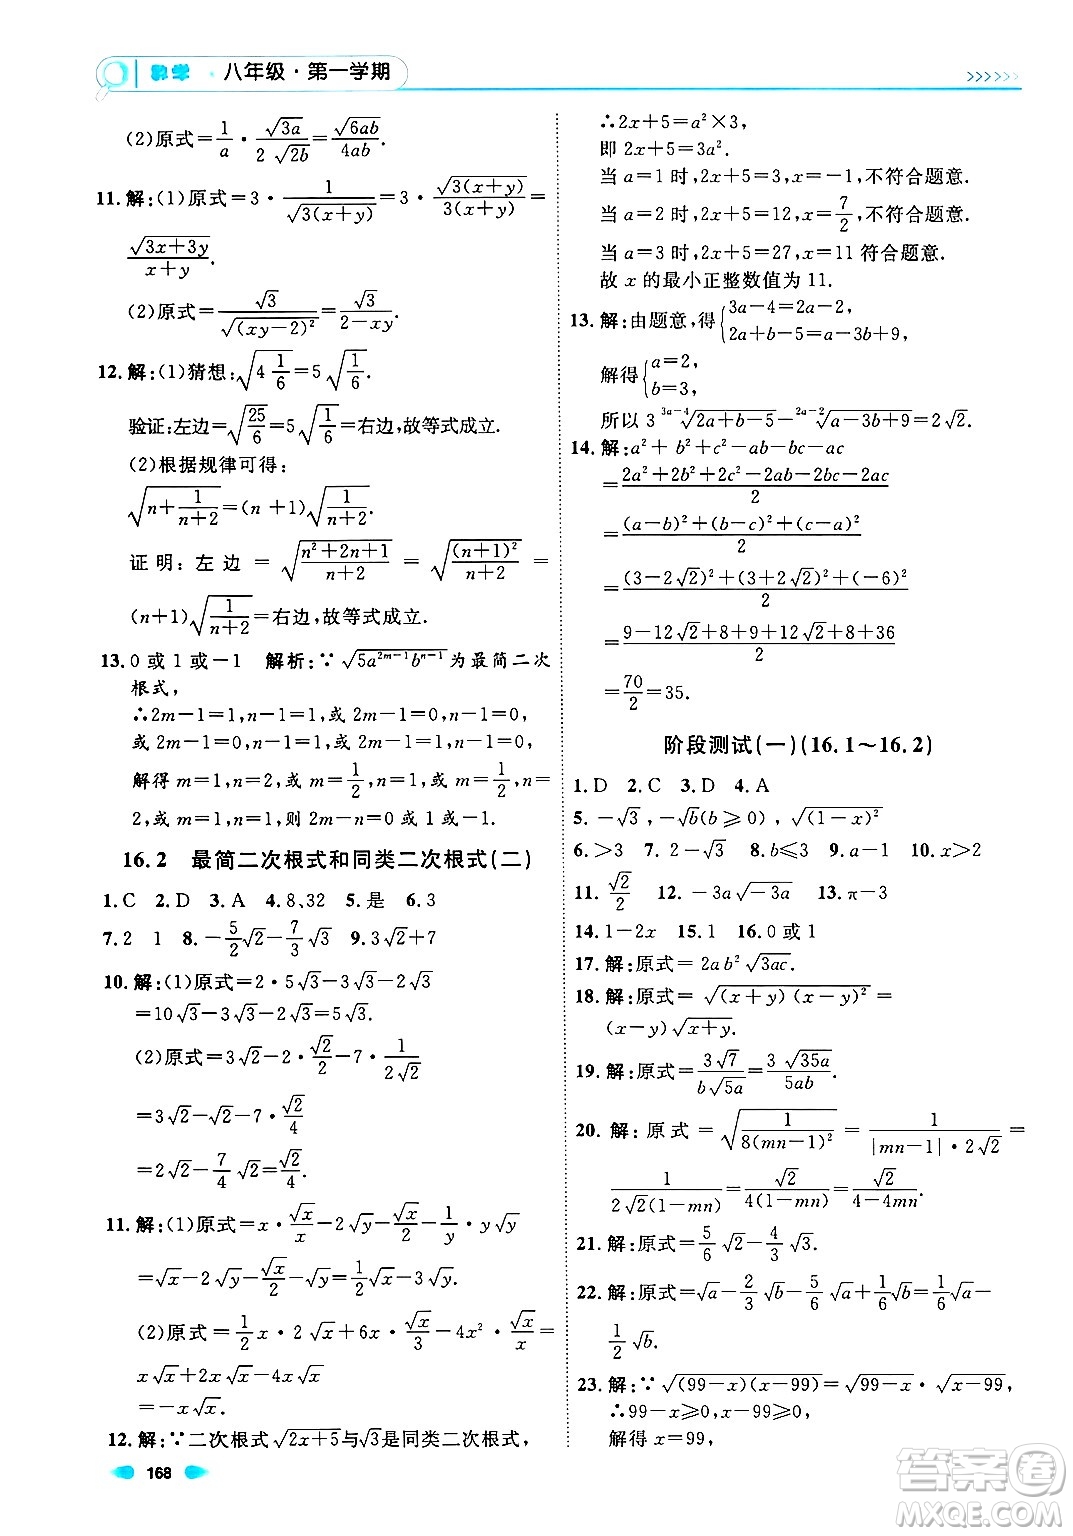 数学 · 八年级 · 第一学期
(2)原式=$\frac{1}{a}$·$\frac{\sqrt{3a}}{2\sqrt{2b}}$=$\frac{\sqrt{6ab}}{4ab}$.
11.解:(1)原式=3·$\frac{1}{\sqrt{3(x+y)}}$=3·$\frac{\sqrt{3(x+y)}}{3(x+y)}$=
$\frac{\sqrt{3x+3y}}{x+y}$.
(2)原式=$\frac{\sqrt{3}}{\sqrt{(xy-2)^2}}$=$\frac{\sqrt{3}}{2-xy}$.
12.解:(1)猜想:$\sqrt{4\frac{1}{6}}$=5$\sqrt{\frac{1}{6}}$.
验证:左边=$\sqrt{\frac{25}{6}}$=5$\sqrt{\frac{1}{6}}$=右边,故等式成立.
(2)根据规律可得:
$\sqrt{n+\frac{1}{n+2}}$=(n+1)$\sqrt{\frac{1}{n+2}}$.
证明:左边=$\sqrt{\frac{n^2+2n+1}{n+2}}$=$\sqrt{\frac{(n+1)^2}{n+2}}$=
(n+1)$\sqrt{\frac{1}{n+2}}$=右边,故等式成立.
13.0 或 1 或-1 解析:∵$\sqrt{5a^{2m-1}b^{n-1}}$为最简二次
根式,
∴2m-1=1,n-1=1,或 2m-1=0,n-1=1,
或 2m-1=1,n-1=0,或 2m-1=0,n-1=0,
解得 m=1,n=2,或 m=$\frac{1}{2}$,n=1,或 m=$\frac{1}{2}$,n=
2,或 m=1,n=1,则 2m-n=0 或 1 或-1.
16.2 最简二次根式和同类二次根式(二)
1.C 2.D 3.A 4.8、32 5.是 6.3
7.2 1 8.-$\frac{5}{2}\sqrt{2}$-$\frac{7}{3}\sqrt{3}$ 9.3$\sqrt{2}$+7
10.解:(1)原式=2·5$\sqrt{3}$-3$\sqrt{3}$-2$\sqrt{3}$
=10$\sqrt{3}$-3$\sqrt{3}$-2$\sqrt{3}$=5$\sqrt{3}$.
(2)原式=3$\sqrt{2}$-2·$\frac{\sqrt{2}}{2}$-7·$\frac{1}{2\sqrt{2}}$
=3$\sqrt{2}$-$\sqrt{2}$-7·$\frac{\sqrt{2}}{4}$
=2$\sqrt{2}$-$\frac{7}{4}\sqrt{2}$=$\frac{\sqrt{2}}{4}$.
11.解:(1)原式=x·$\frac{\sqrt{x}}{x}$-2$\sqrt{y}$-$\frac{\sqrt{x}}{2}$+$\frac{1}{y}$·y$\sqrt{y}$
=$\sqrt{x}$-2$\sqrt{y}$-$\frac{\sqrt{x}}{2}$+$\sqrt{y}$=$\frac{1}{2}\sqrt{x}$-$\sqrt{y}$.
(2)原式=$\frac{1}{2}$x·2$\sqrt{x}$+6x·$\frac{\sqrt{x}}{3}$-4x$^2$·$\frac{\sqrt{x}}{x}$=
x$\sqrt{x}$+2x$\sqrt{x}$-4x$\sqrt{x}$
=-x$\sqrt{x}$.
12.解:∵二次根式$\sqrt{2x+5}$与$\sqrt{3}$是同类二次根式,
168
∴2x+5=a$^2$×3,
即 2x+5=3a$^2$.
当 a=1 时,2x+5=3,x=-1,不符合题意.
当 a=2 时,2x+5=12,x=$\frac{7}{2}$,不符合题意.
当 a=3 时,2x+5=27,x=11 符合题意.
故 x 的最小正整数值为 11.
13.解:由题意,得$\begin{cases}3a-4=2a-2,\\2a+b-5=a-3b+9,\end{cases}$
解得$\begin{cases}a=2,\\b=3,\end{cases}$
所以 3$\sqrt[3a-4]{2a+b-5}$-$\sqrt[2a-2]{a-3b+9}$=2$\sqrt{2}$.
14.解:a$^2$+b$^2$+c$^2$-ab-bc-ac
=$\frac{2a^2+2b^2+2c^2-2ab-2bc-2ac}{2}$
=$\frac{(a-b)^2+(b-c)^2+(c-a)^2}{2}$
=$\frac{(3-2\sqrt{2})^2+(3+2\sqrt{2})^2+(-6)^2}{2}$
=$\frac{9-12\sqrt{2}+8+9+12\sqrt{2}+8+36}{2}$
=$\frac{70}{2}$=35.
阶段测试(一)(16.1~16.2)
1.D 2.C 3.D 4.A
5.-$\sqrt{3}$,-$\sqrt{b}$(b≥0),$\sqrt{(1-x)^2}$
6.>3 7.2-$\sqrt{3}$ 8.b≤3 9.x 10.x>2
11.$\frac{\sqrt{2}}{2}$ 12.-3a$\sqrt{-3a}$ 13.π-3
14.1-2x 15.1 16.0 或 1
17.解:原式=2ab$^2\sqrt{3ac}$.
18.解:原式=$\sqrt{(x+y)(x-y)^2}$=
(x-y)$\sqrt{x+y}$.
19.解:原式=$\frac{3\sqrt{7}}{b\sqrt{5a}}$=$\frac{3\sqrt{35a}}{5ab}$.
20.解:原式=$\sqrt{\frac{1}{8(mn-1)^2}}$=$\frac{1}{|mn-1|·2\sqrt{2}}$=
$\frac{1}{2\sqrt{2}(1-mn)}$=$\frac{\sqrt{2}}{4(1-mn)}$=$\frac{\sqrt{2}}{4-4mn}$.
21.解:原式=$\frac{5}{6}\sqrt{2}$-$\frac{4}{3}\sqrt{3}$.
22.解:原式=$\sqrt{a}$-$\frac{2}{3}\sqrt{b}$-$\frac{5}{6}\sqrt{a}$+$\frac{1}{6}\sqrt{b}$=$\frac{1}{6}\sqrt{a}$-
$\frac{1}{2}\sqrt{b}$.
23.解:∵$\sqrt{(99-x)(x-99)}$=$\sqrt{99-x}$·$\sqrt{x-99}$,
∴99-x≥0,x-99≥0,
解得 x=99,
答案圈
MXQE.COM